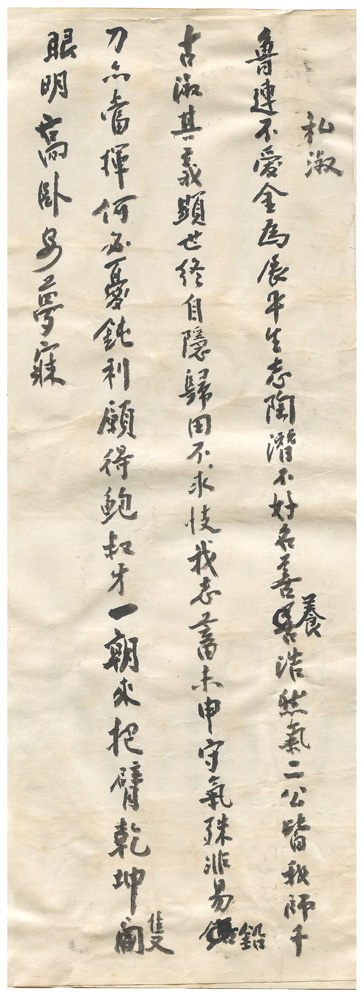 私淑
魯連不愛金為展平生志陶潛不好名善養浩然氣二公皆我師千
古淑其義顯世終自隱歸田不求伎我志蓄未申守氣殊非易鉛
刀亦當揮何必憂鈍利願得鮑叔牙一朝來把臂乾坤雙
眼明高臥安夢寐